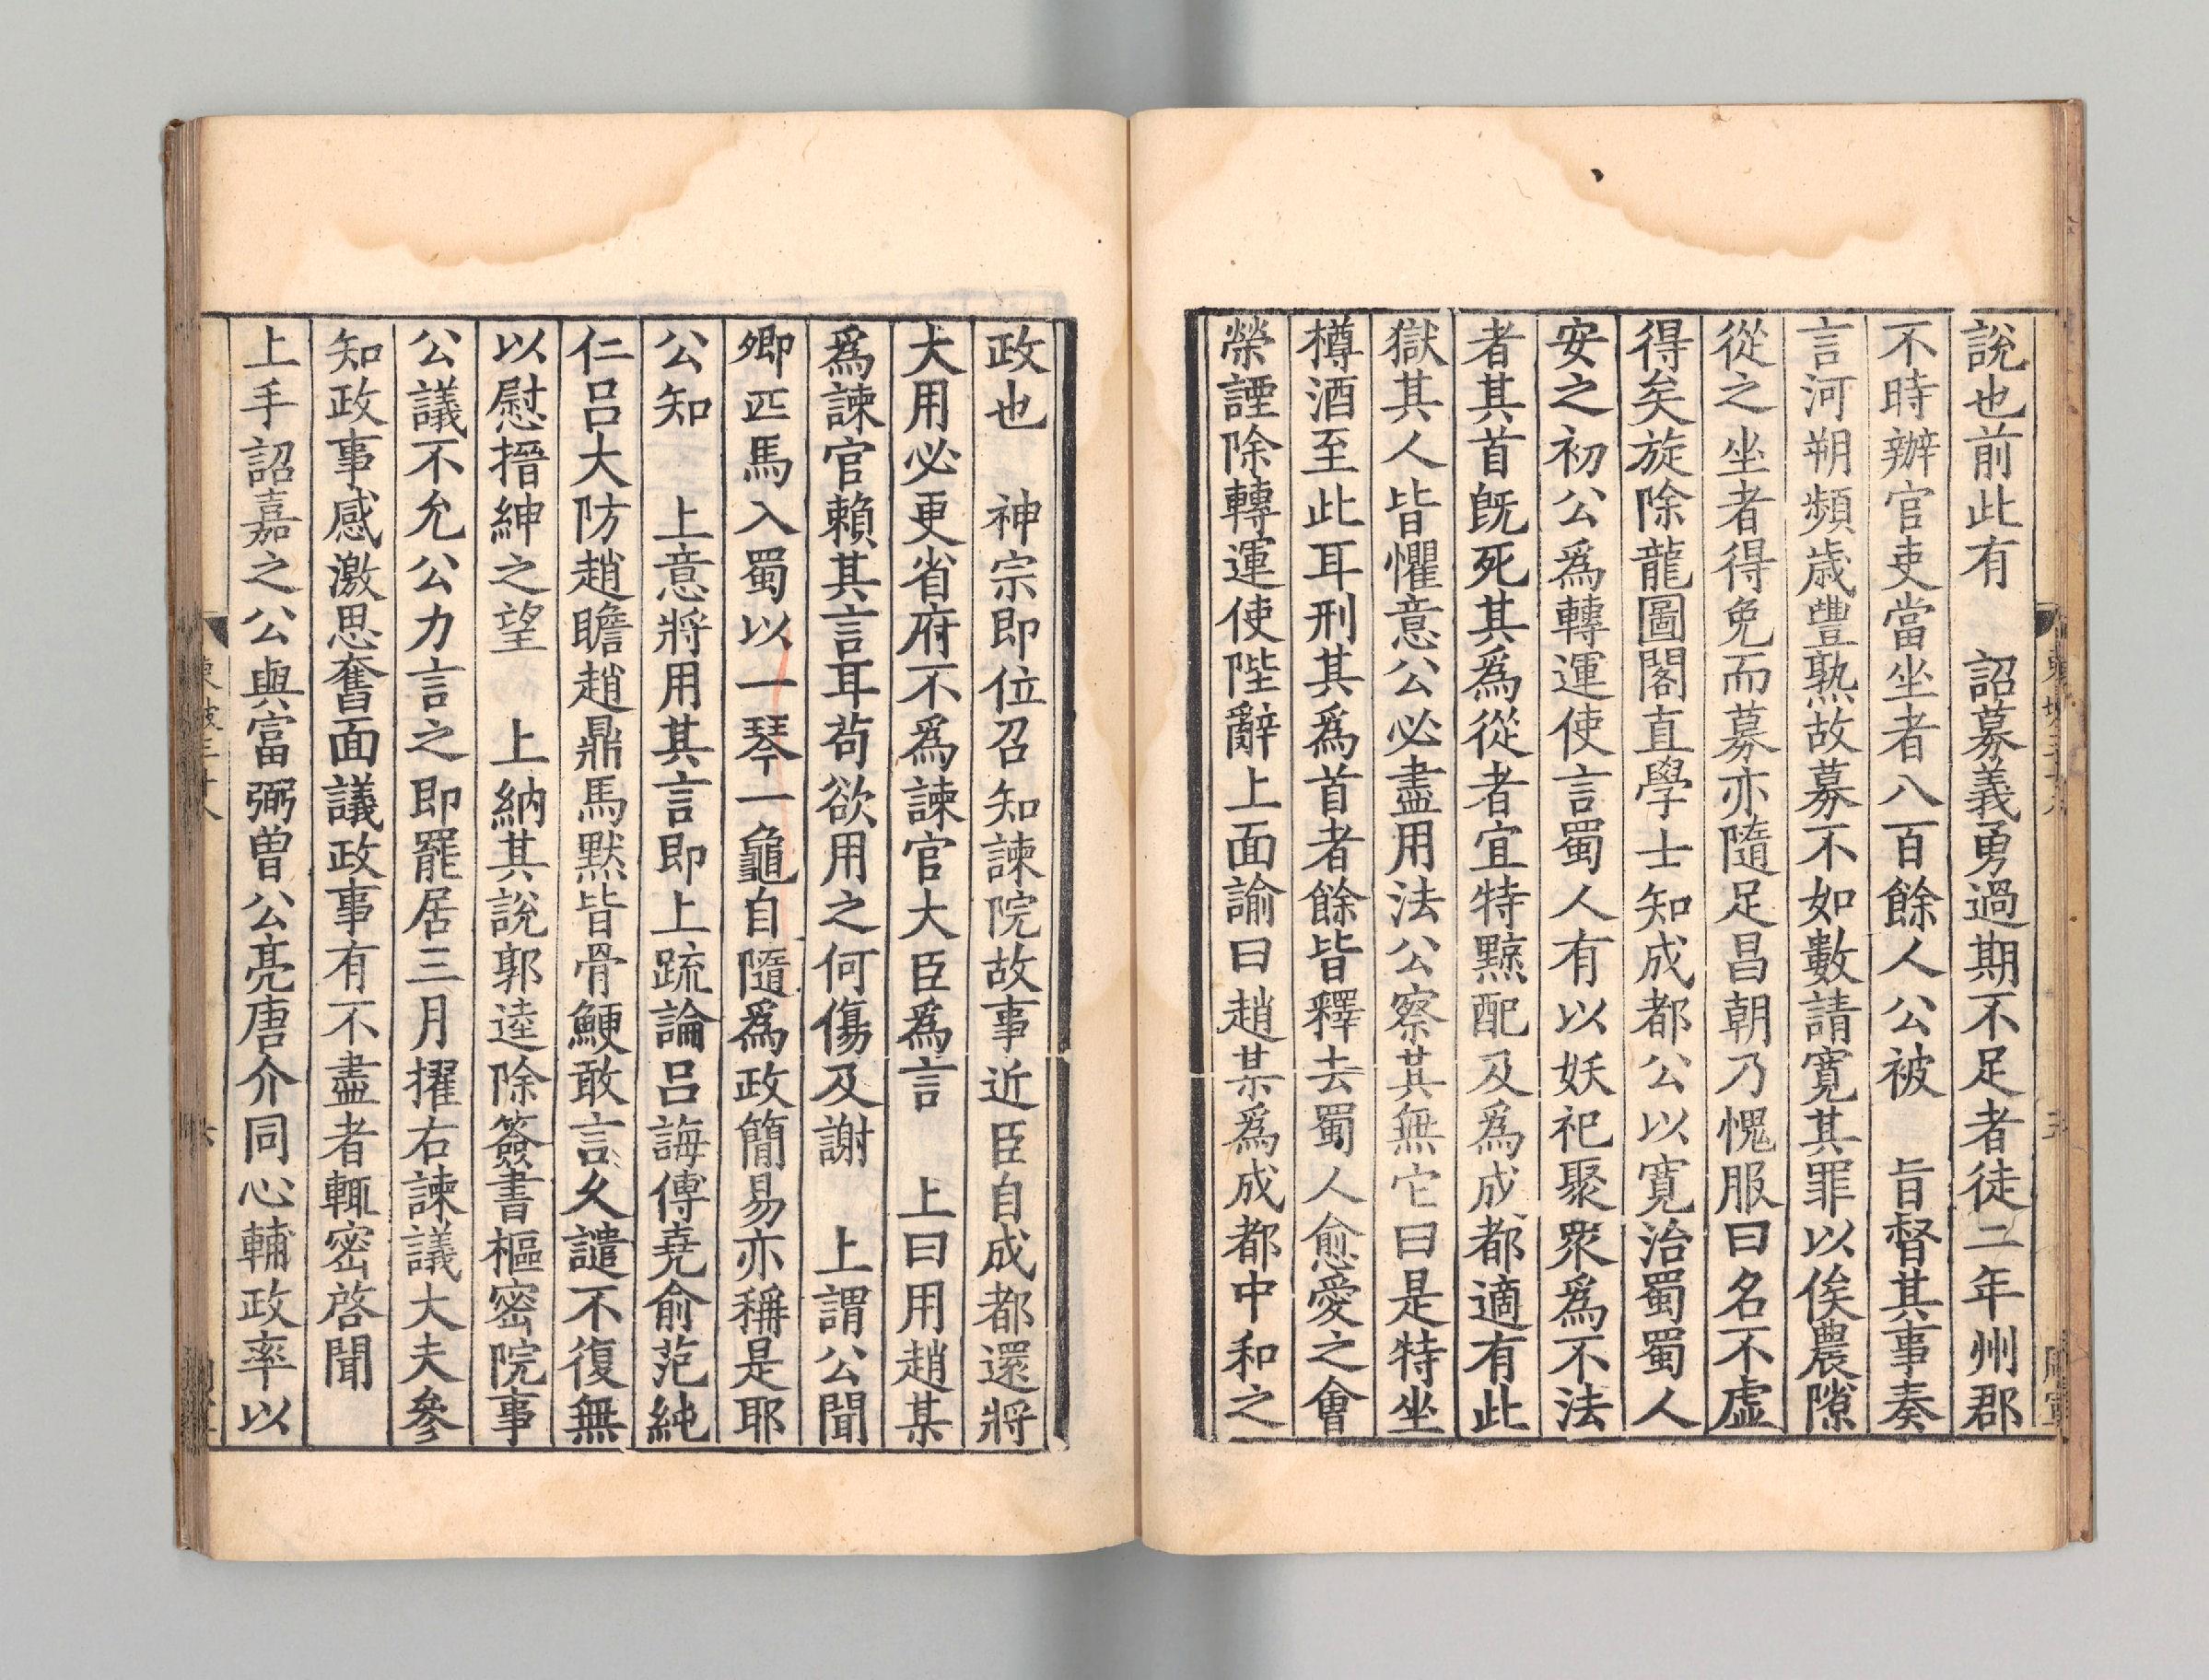 說也前此有　詔募義勇過期不足者徒二年州郡
不時辦官吏當坐者八百餘人公被　旨督其事奏
言河朔頻歲豐熟故募不如數請寬其罪以俟農隙
從之坐者得免而募亦隨足昌朝乃愧服曰名不虛
得矣旋除龍圖閣直學士知成都公以寬治蜀蜀人
安之初公爲轉運使言蜀人有以妖祀聚衆爲不法
者其首旣死其爲從者宜特黥配及爲成都適有此
獄其人皆懼意公必盡用法公察其無它曰是特坐
樽酒至此耳刑其爲首者餘皆釋去蜀人愈愛之會
榮諲除轉運使陛辭上面諭曰趙某爲成都中和之
政也　神宗即位召知諫院故事近臣自成都還將
大用必更省府不爲諫官大臣爲言　上曰用趙某
爲諫官賴其言耳苟欲用之何傷及謝　上謂公聞
卿匹馬入蜀以一琴一龜自隨爲政簡易亦稱是耶
公知　上意將用其言即上疏論呂誨傅堯俞范純
仁呂大防趙瞻趙鼎馬默皆骨鯁敢言久譴不復無
以慰搢紳之望　上納其說郭逵除簽書樞密院事
公議不允公力言之即罷居三月擢右諫議大夫參
知政事感激思奮面議政事有不盡者輒密啓聞
上手詔嘉之公與富弼曾公亮唐介同心輔政率以
東坡三十八
六